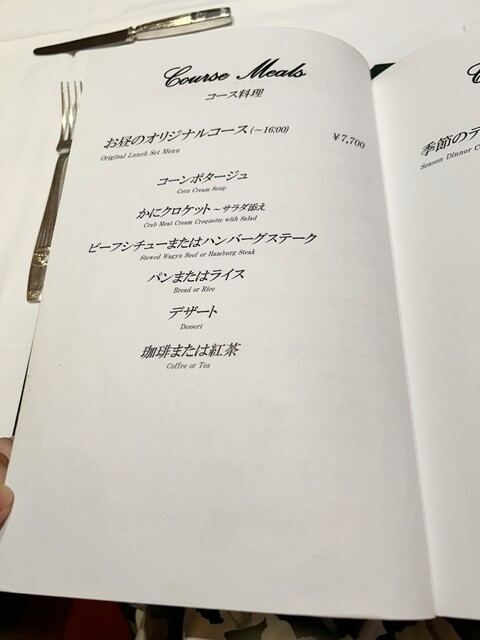 Course Meals
コース料理
お昼のオリジナルコース(～16:00) ￥7,700
Original Lunch Set Menu
コーンポタージュ
Corn Cream Soup
かにクロケット～サラダ添え
Crab Meat Cream Croquette with Salad
ビーフシチューまたはハンバーグステーク
Stewed Wagyu Beef or Hamburg Steak
パンまたはライス
Bread or Rice
デザート
Dessert
珈琲または紅茶
Coffee or Tea
季節のデ
Season Dinner C